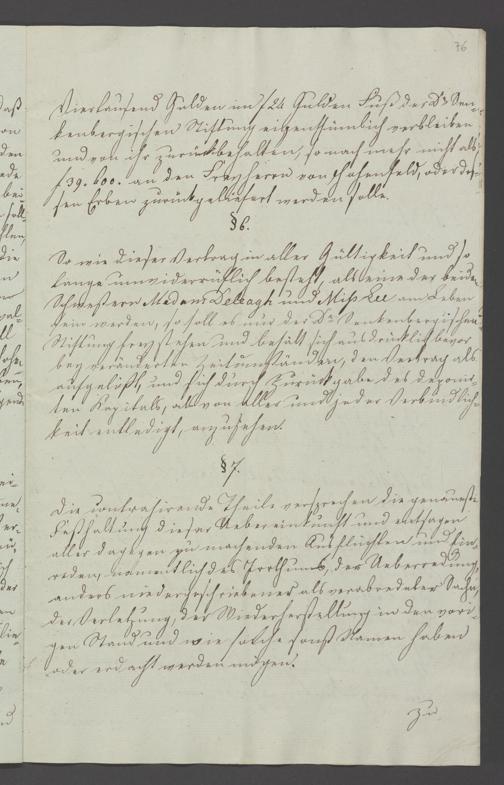 76
Viertausend Gulden im f 24 Gulden Fuß der Dr. Sen-
kenbergischen Stiftung eigenthümlich verbleiben
und von ihr zurückbehalten, so nach mehr nicht als
f 39,600. an den Freyherrn von Hahenfeld, oder des-
sen Erben zurückgeliefert werden solle.
§ 6.
So wie dieser Vertrag in aller Gültigkeit und so
lange unwiderrüflich besteht, als eine der beiden
Schwestern Madam Deleagh und Miss Lee am Leben
sein werden, so soll es nur der Dr. Senkenbergischen
Stiftung freystehen und behält sich ausdrücklich bevor
bey veränderten Zeitumständen, den Vertrag als
aufgelößt, und sich durch Zurückgabe des deponir-
ten Kapitals, als von aller und jeder Verbindlich-
keit entledigt, anzusehen.
§ 7.
Die contrahirende Theile versprechen die genaueste
Festhaltung dieser Uebereinkunft und entsagen
aller dagegen zu machenden Ausflüchten und Ein-
reden, namentlich des Irrthums, der Ueberredung,
anders niedergeschriebener als verabredeter Sache,
der Verletzung, der Wiederherstellung in den vori-
gen Stand und wie solche sonst Namen haben
oder erdacht werden mögen.
Zu